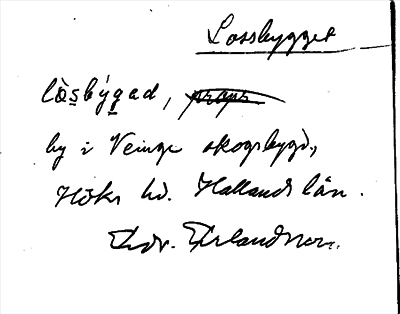 Lossbygget
lòs̱býg̱ad, props
by i Veinge skogsbygd,
Höks hd. Hallands län.
Thdr. Erlandsson.